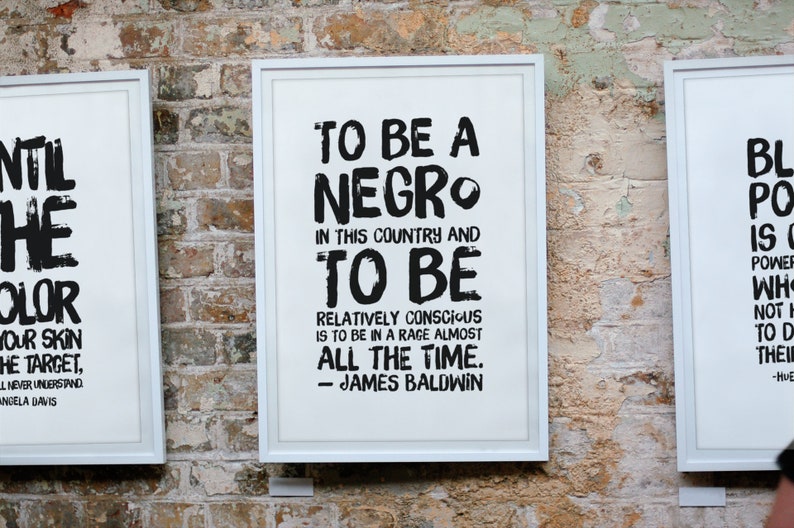 NTIL
HE
OLOR
YOUR SKIN
HE TARGET,
LL NEVER UNDERSTAND.
ANGELA DAVIS
TO BE A
NEGRO
IN THIS COUNTRY AND
TO BE
RELATIVELY CONSCIOUS
IS TO BE IN A RAGE ALMOST
ALL THE TIME.
– JAMES BALDWIN
BL
PO
IS
POWER
WHO
NOT H
TO D
THEIR
-HUE